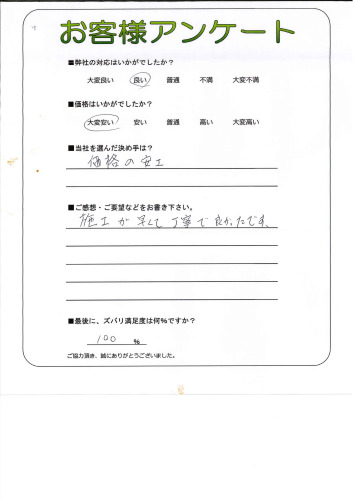 お客様アンケート
■弊社の対応はいかがでしたか？
大変良い 良い 普通 不満 大変不満
■価格はいかがでしたか？
大変安い 安い 普通 高い 大変高い
■当社を選んだ決め手は？
価格の安エ
■ご感想・ご要望などをお書き下さい。
施工が早くて丁寧で良かったです。
■最後に、ズバリ満足度は何％ですか？
100 %
ご協力頂き、誠にありがとうございました。